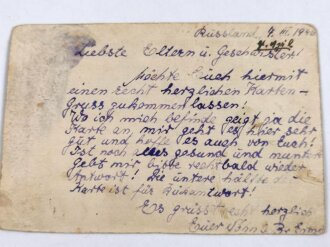 Russland, 4. III. 194
4. April
Liebste Eltern u. Geschwister!
Möchte Euch hiermit
einen recht herzlichen Karten-
Gruss zukommen lassen!
Wo ich mich befinde zeigt ja die
Karte an, mir geht es hier sehr
gut, und hoffe es auch von Euch!
Ist noch alles gesund und munter
Gebt mir bitte recht bald wieder
Antwort! Die untere hälfte
Karte ist für Rückantwort!
Es grüsst recht herzlich
Euer Sohn u. Br.